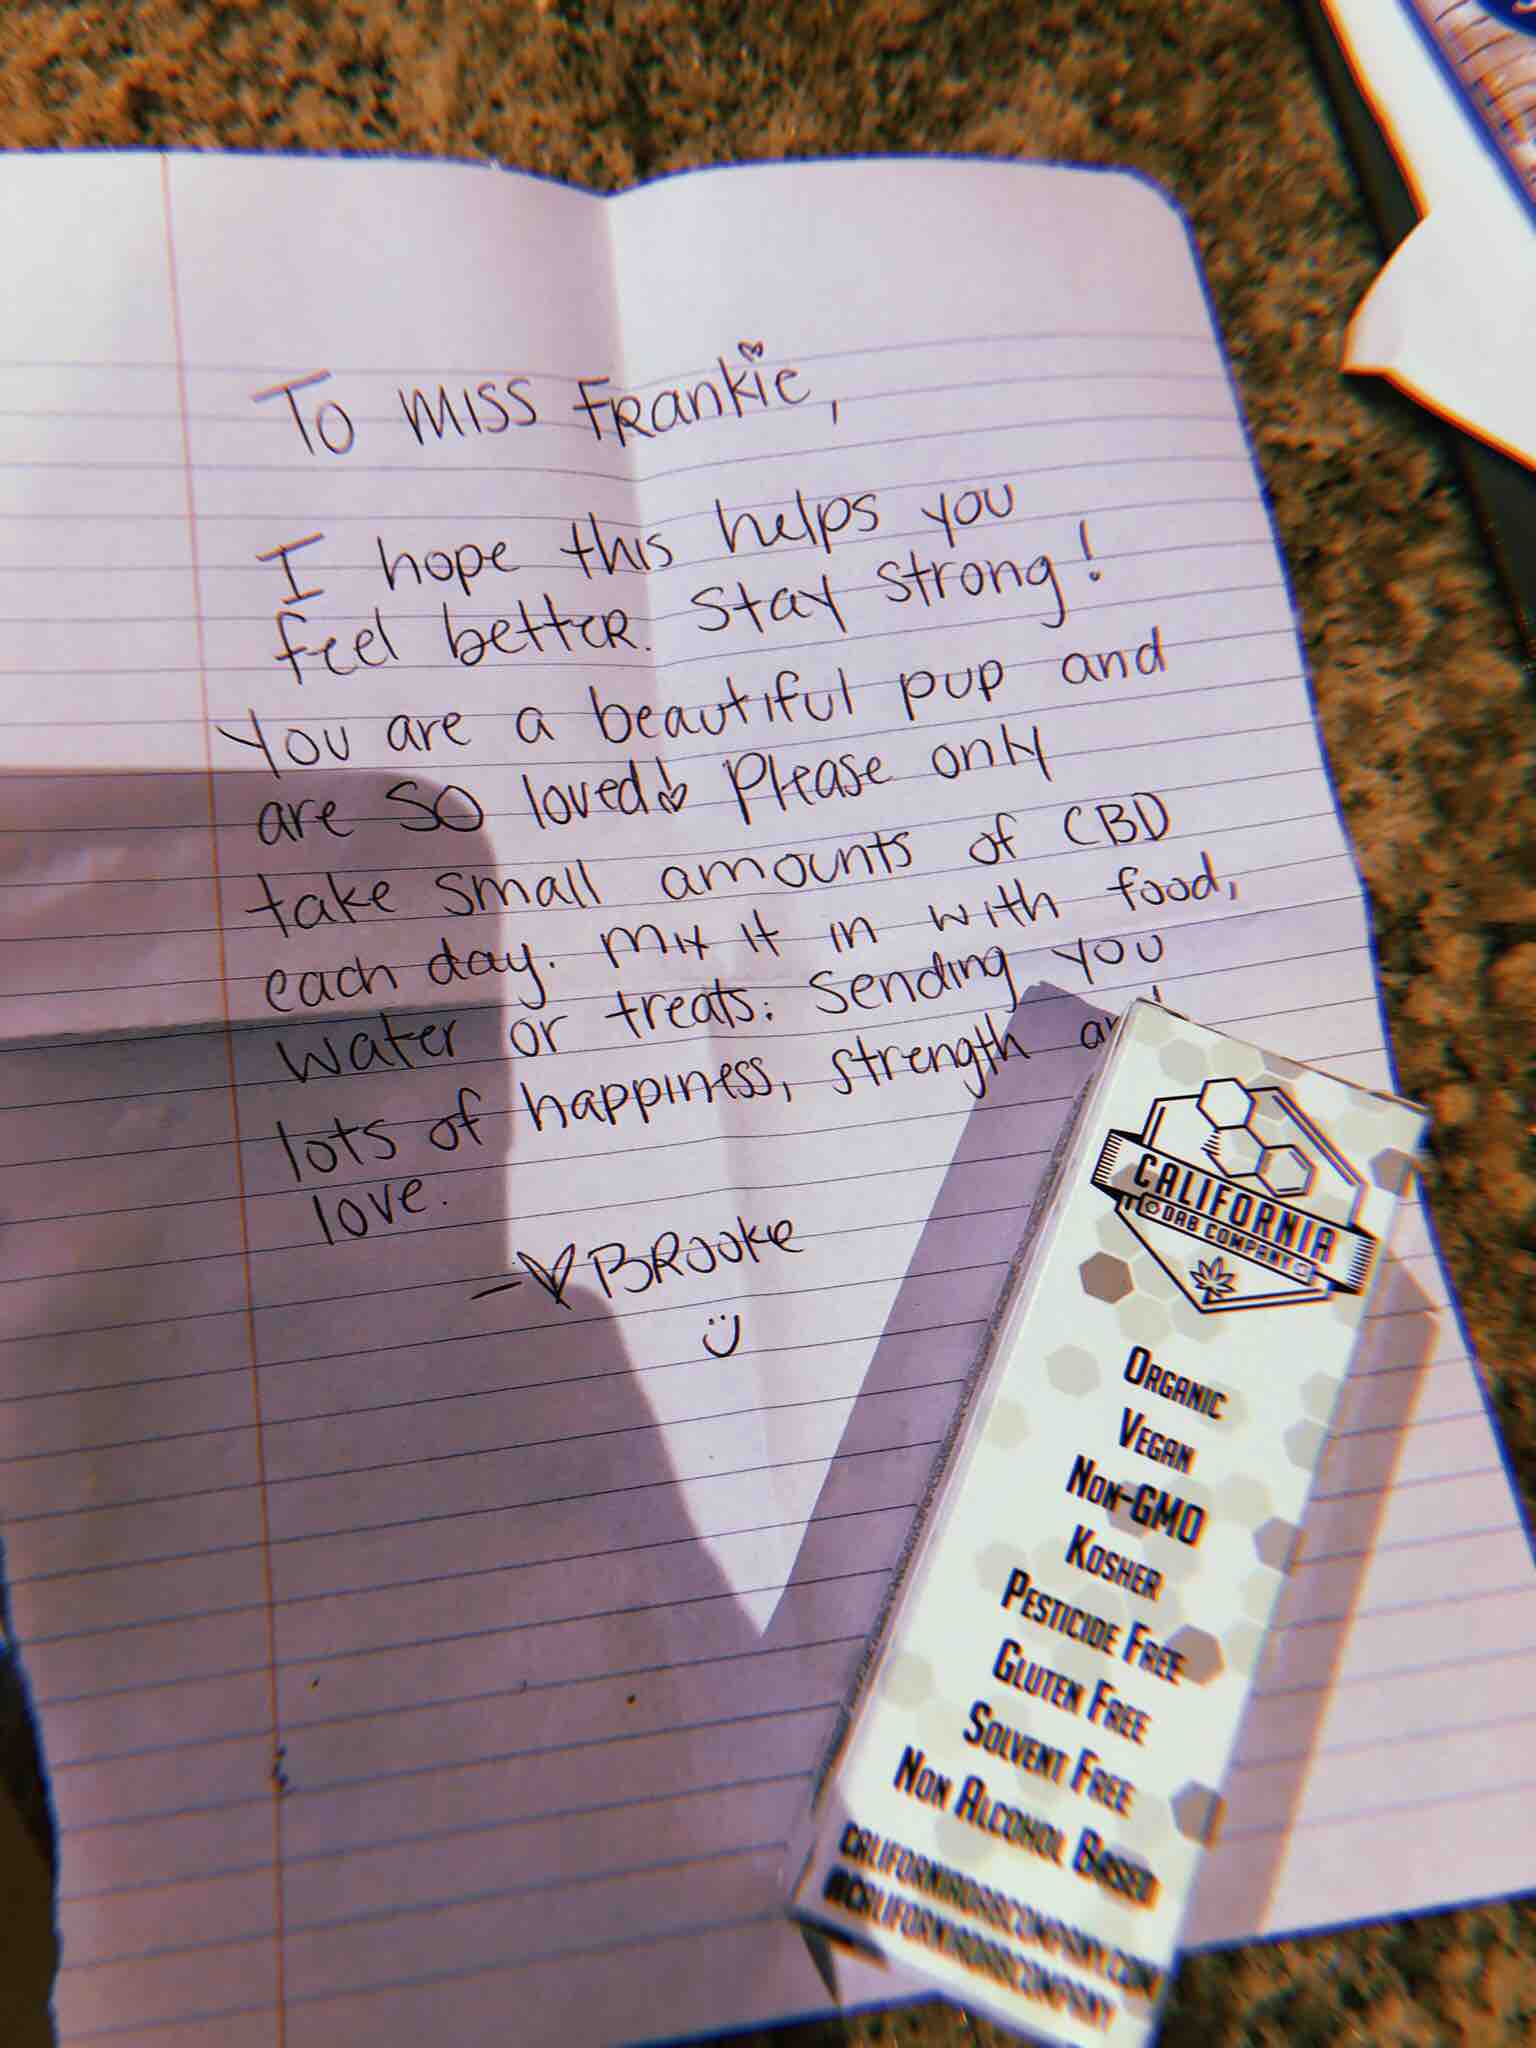 To Miss Frankie,
I hope this helps you
feel better. Stay strong!
You are a beautiful pup and
are SO loved! Please only
take small amounts of CBD
each day. Mix it in with food,
water or treats. Sending you
lots of happiness, strength
love.
- Brooke
CALIFORNIA
DAB COMPANY
ORGANIC
VEGAN
NON-GMO
KOSHER
PESTICIDE FREE
GLUTEN FREE
SOLVENT FREE
NON ALCOHOL BASED
CALIFORNIADABCOMPANY.COM
@CALIFORNIADABCOMPANY